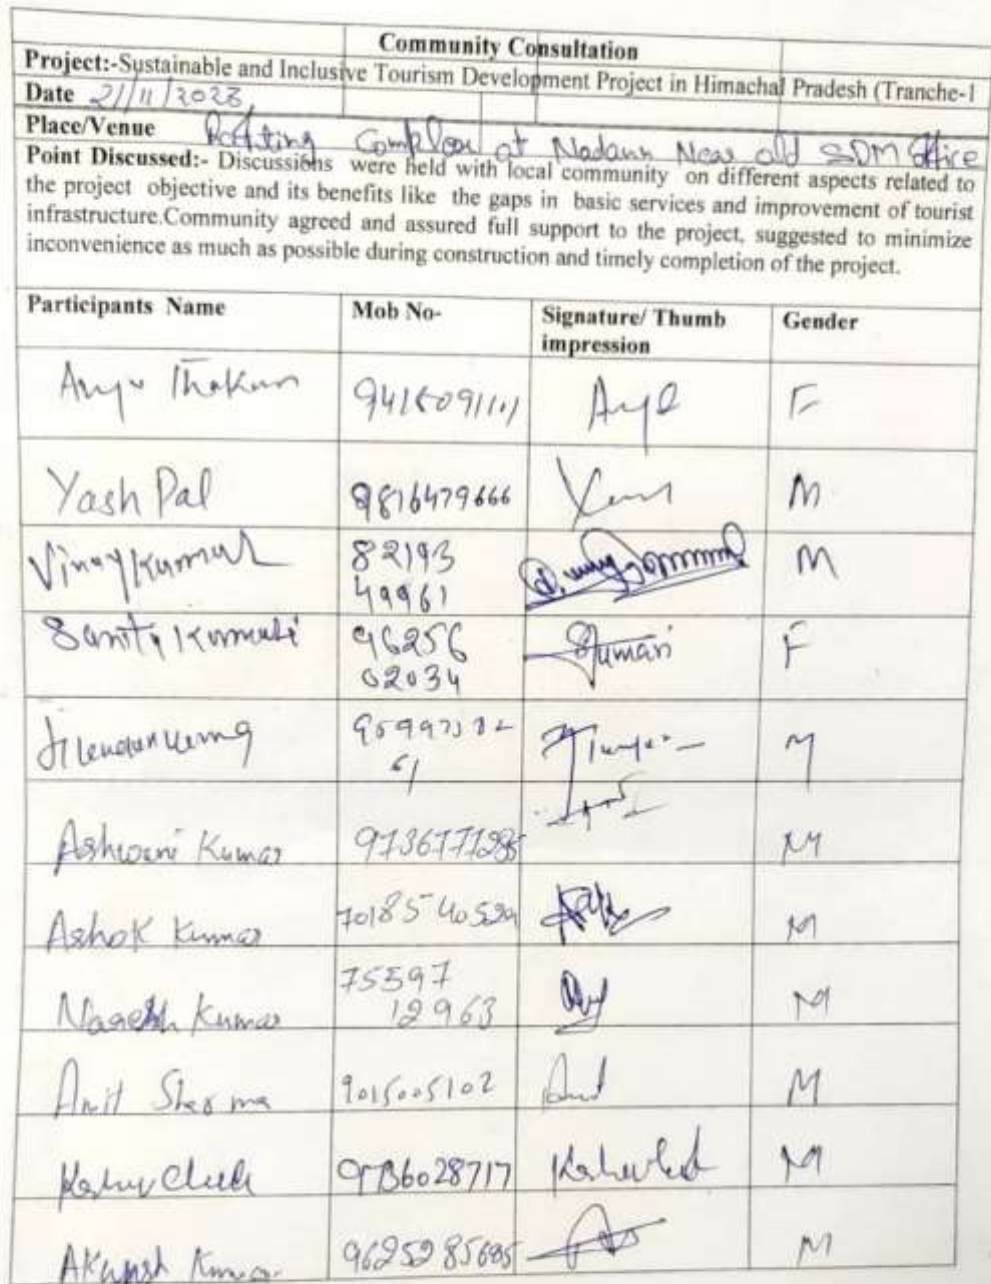 Community Consultation
Project:-Sustainable and Inclusive Tourism Development Project in Himachal Pradesh (Tranche-1
Date 21/11/2023
Place/Venue Rafting Complex at Nadaun Near old SDM Office
Point Discussed:- Discussions were held with local community on different aspects related to
the project objective and its benefits like the gaps in basic services and improvement of tourist
infrastructure.Community agreed and assured full support to the project, suggested to minimize
inconvenience as much as possible during construction and timely completion of the project.
Participants Name Mob No- Signature/ Thumb impression Gender
Thakur F
Yash Pal 9816479666 M
Vinay Kumar 82193 M
49961
Kumari 96256 Kumari F
02034
M
Ashwani Kumar M
Ashok Kumar M
Kumar 75597 M
12963
Sharma 9015005102 M
9736028717 M
Kumar 9625285685 M